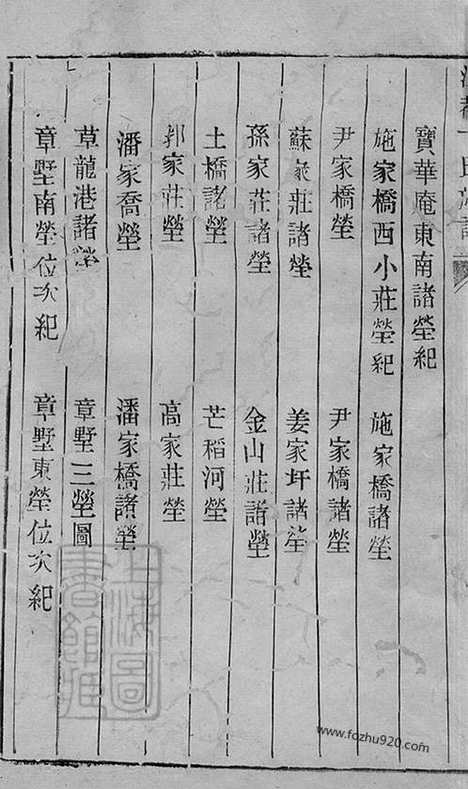 寶華庵東南諸塋紀
施家橋西小莊塋紀 施家橋諸塋
尹家橋塋 尹家橋諸塋
蘇家莊諸塋 姜家圩諸塋
孫家莊諸塋 金山莊諸塋
土橋諸塋 芒稻河塋
郭家莊塋 高家莊塋
潘家喬塋 潘家橋諸塋
草龍港諸塋 章墅三塋圖
章墅南塋位次紀 章墅東塋位次紀
上海圖書館藏
www.fozhu920.com